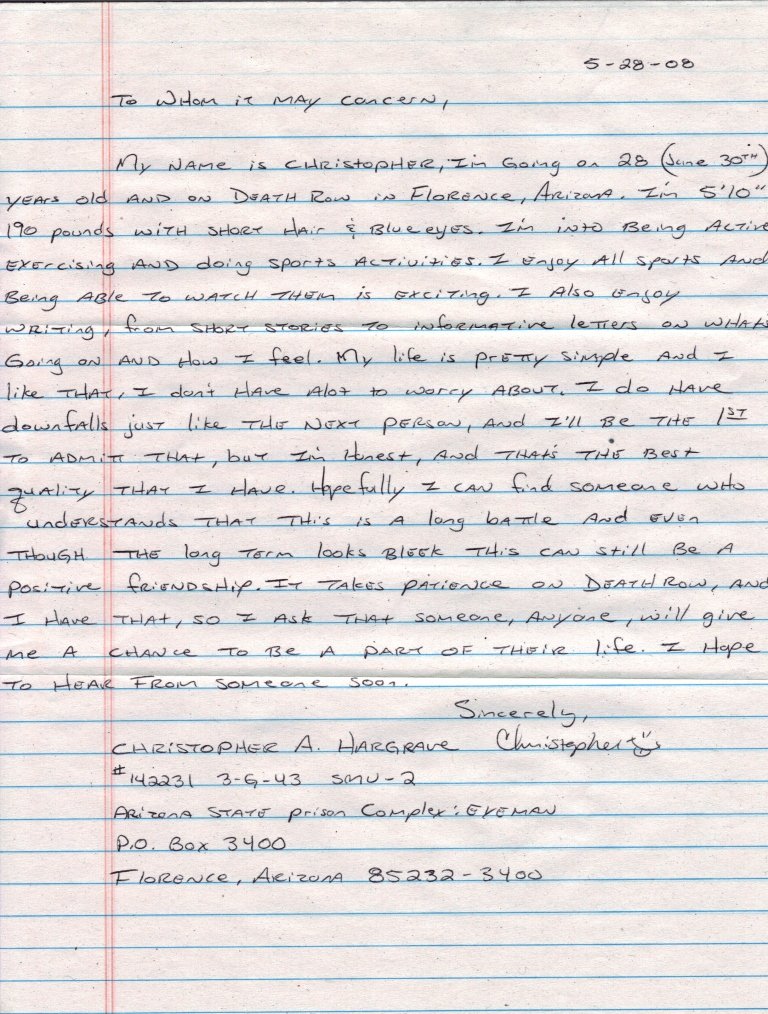 5-28-08
To Whom it may concern,
My name is Christopher, I'm Going on 28 (June 30TH)
years old and on Death Row in Florence, Arizona. I'm 5'10"
190 pounds with short hair & Blue eyes. I'm into Being Active
Exercising and doing sports activities. I enjoy All sports and
Being able to watch them is exciting. I also enjoy
writing, from short stories to informative letters on whats
Going on and how I feel. My life is pretty simple and I
like that, I don't have alot to worry about. I do have
downfalls just like the next person, and I'll be the 1ST
to admitt that, but I'm Honest, and that's the Best
quality that I have. Hopefully I can find someone who
understands that this is a long battle and even
though the long term looks bleek this can still be a
positive friendship. It takes patience on Death Row, and
I have that, so I ask that someone, anyone, will give
me a chance to be a part of their life. I Hope
to hear from someone soon.
Sincerely,
Christopher A. Hargrave Christopher
#142231 3-G-43 SMU-2
Arizona State prison Complex: Eyeman
P.O. Box 3400
Florence, Arizona 85232-3400